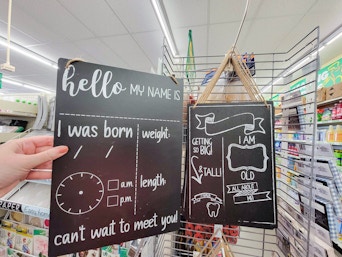 hello MY NAME IS
I was born
weight:
/ /
a.m.
p.m.
length:
can't wait to meet you!
GETTING
SO
BIG!
TALL!
I AM
OLD
ALL ABOUT
ME